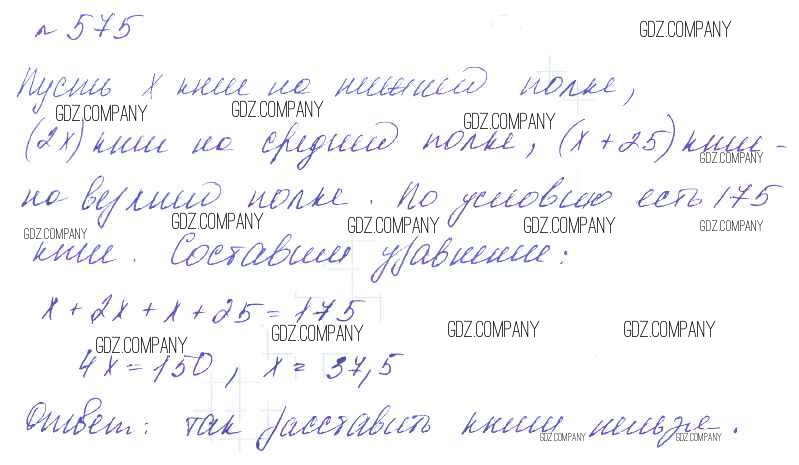 № 575
GDZ.COMPANY
Пусть x книг на нижней полке,
GDZ.COMPANY GDZ.COMPANY GDZ.COMPANY
(2x) книг на средней полке, (x + 25) книг -
GDZ.COMPANY
на верхней полке. По условию есть 175
GDZ.COMPANY GDZ.COMPANY GDZ.COMPANY GDZ.COMPANY GDZ.COMPANY
книг. Составим уравнение:
x + 2x + x + 25 = 175
GDZ.COMPANY GDZ.COMPANY GDZ.COMPANY GDZ.COMPANY
4x = 150, x = 37,5
Ответ: так расставить книги нельзя.
GDZ.COMPANY GDZ.COMPANY